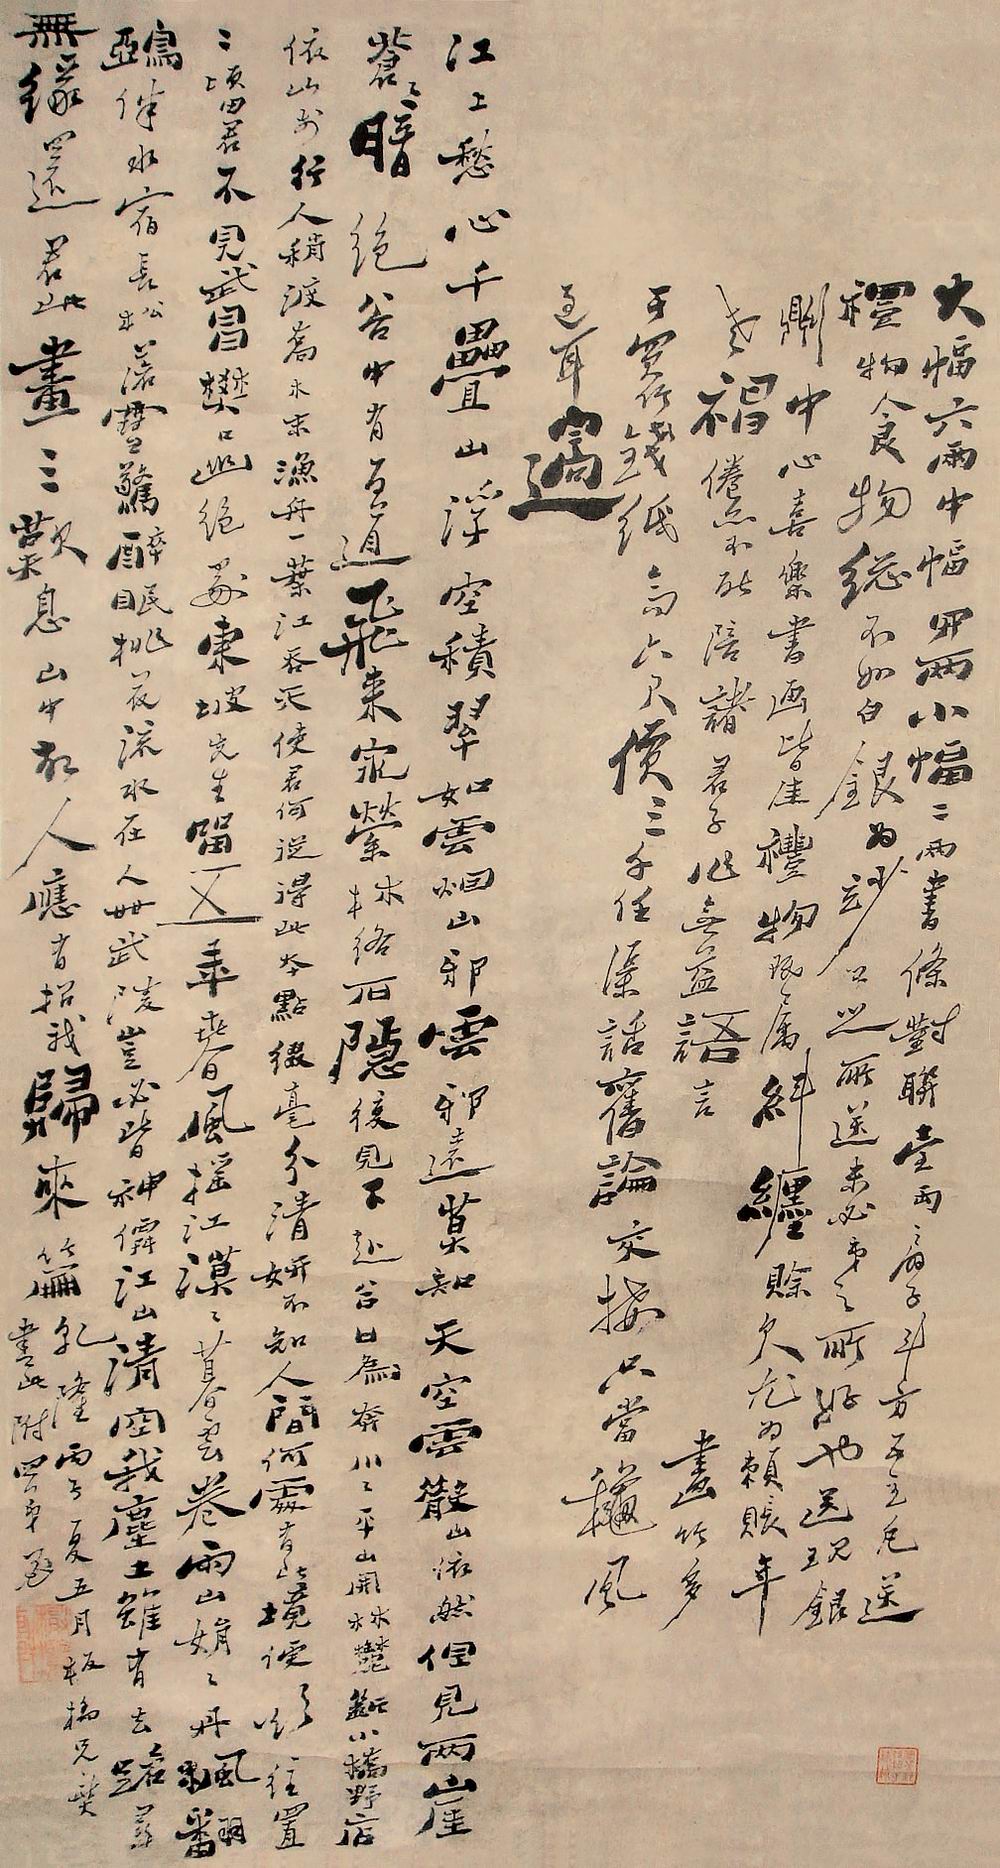 大幅六兩中幅四兩小幅二兩書條對聯壹兩扇子斗方五凡送
禮物食物總不如白銀為妙公之所送未必弟之所好也送現銀
則中心喜樂書画皆佳禮物既屬糾纏賒欠尤為賴賬年
老神倦亦不能陪諸君子作無益語言 畫竹多
于買竹錢紙高六尺價三千任渠話舊論交接只當秋風
過耳邊
江上愁心千疊山浮空積翠如雲烟山邪雲邪遠莫知天空雲散山依然但見兩崖
蒼〻暗絕谷中有百道飛來泉縈林絡石隱復見下赴谷口為奔川〻平山開林麓斷小橋野店
依山前行人稍渡喬木末漁舟一葉江吞天使君何從得此本點綴毫分清妍不知人間何處有此境便欲往置
二頃田君不見武昌樊口幽絕處東坡先生留五年春風搖江漠〻暮雲卷雨山娟〻丹楓翻
鴉伴水宿長松落雪驚醉眠桃花流水在人世武陵豈必皆神僊江山清空我塵土雖有去路尋
無緣還君此畫三歎息山中故人應有招我歸來篇
乾隆丙子夏五月板橋兄燮
書此附四弟墨